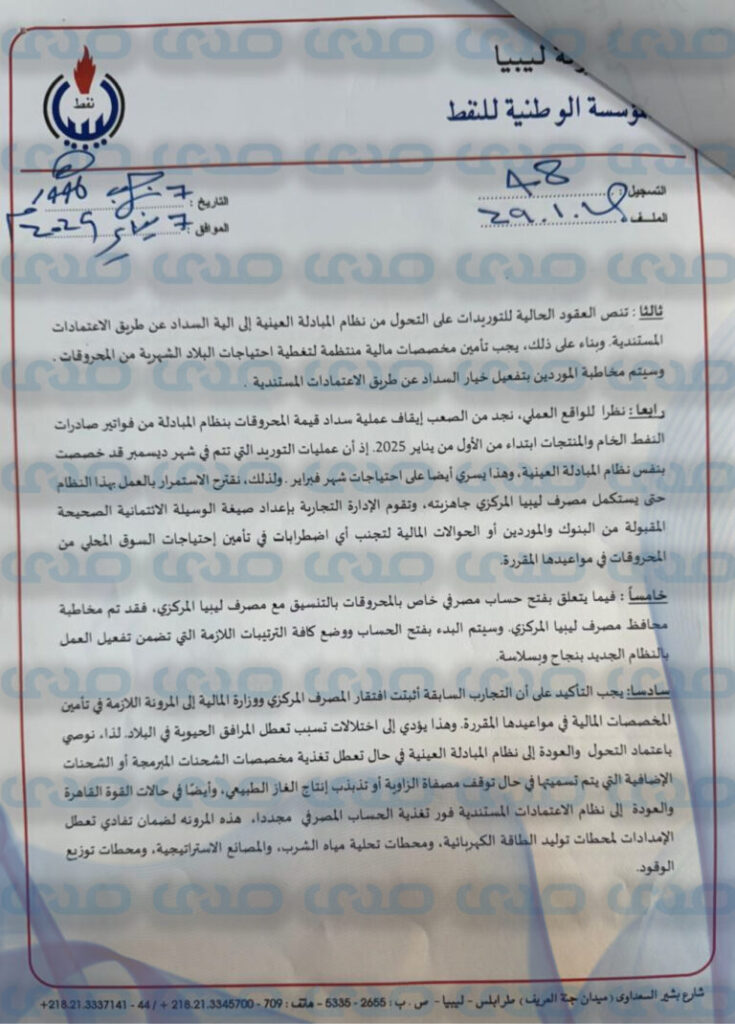 ليبيا
المؤسسة الوطنية للنفط
نفط
التسجيل : 48
الملف : 29.1.
التاريخ : 7 رجب 1446
الموافق : 7 يناير 2025
ثالثا : تنص العقود الحالية للتوريدات على التحول من نظام المبادلة العينية إلى الية السداد عن طريق الاعتمادات
المستندية. وبناء على ذلك، يجب تأمين مخصصات مالية منتظمة لتغطية احتياجات البلاد الشهرية من المحروقات .
وسيتم مخاطبة الموردين بتفعيل خيار السداد عن طريق الاعتمادات المستندية .
رابعا: نظرا للواقع العملي، نجد من الصعب إيقاف عملية سداد قيمة المحروقات بنظام المبادلة من فواتير صادرات
النفط الخام والمنتجات ابتداء من الأول من يناير 2025. إذ أن عمليات التوريد التي تتم في شهر ديسمبر قد خصصت
بنفس نظام المبادلة العينية، وهذا يسري أيضا على احتياجات شهر فبراير . ولذلك، نقترح الاستمرار بالعمل بهذا النظام
حتى يستكمل مصرف ليبيا المركزي جاهزيته، وتقوم الإدارة التجارية بإعداد صيغة الوسيلة الائتمانية الصحيحة
المقبولة من البنوك والموردين أو الحوالات المالية لتجنب أي اضطرابات في تأمين إحتياجات السوق المحلي من
المحروقات في مواعيدها المقررة.
خامساً : فيما يتعلق بفتح حساب مصرفي خاص بالمحروقات بالتنسيق مع مصرف ليبيا المركزي، فقد تم مخاطبة
محافظ مصرف ليبيا المركزي. وسيتم البدء بفتح الحساب ووضع كافة الترتيبات اللازمة التي تضمن تفعيل العمل
بالنظام الجديد بنجاح وبسلاسة.
سادسا: يجب التأكيد على أن التجارب السابقة أثبتت افتقار المصرف المركزي ووزارة المالية إلى المرونة اللازمة في تأمين
المخصصات المالية في مواعيدها المقررة. وهذا يؤدي إلى اختلالات تسبب تعطل المرافق الحيوية في البلاد. لذا، نوصي
باعتماد التحول والعودة إلى نظام المبادلة العينية في حال تعطل تغذية مخصصات الشحنات المبرمجة أو الشحنات
الإضافية التي يتم تسميتها في حال توقف مصفاة الزاوية أو تذبذب إنتاج الغاز الطبيعي، وأيضًا في حالات القوة القاهرة
والعودة إلى نظام الاعتمادات المستندية فور تغذية الحساب المصرفي مجددا، هذه المرونه لضمان تفادي تعطل
الإمدادات لمحطات توليد الطاقة الكهربائية، ومحطات تحلية مياه الشرب، والمصانع الاستراتيجية، ومحطات توزيع
الوقود.
شارع بشير السعداوى (ميدان جنة العريف) طرابلس - ليبيا - ص . ب : 2655 - 5335 - هاتف : 709 - 218.21.3345700 + / 44 - 218.21.3337141+
صدى